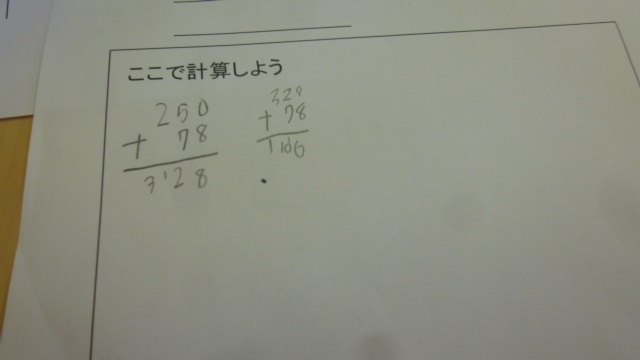 ここで計算しよう
250
+ 78
3128
328
+ 78